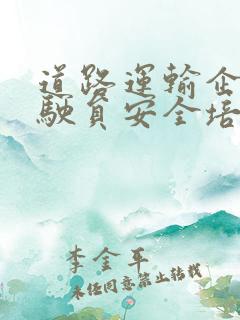 道路運輸企
駛員安全培
李金平
未经同意禁止转载